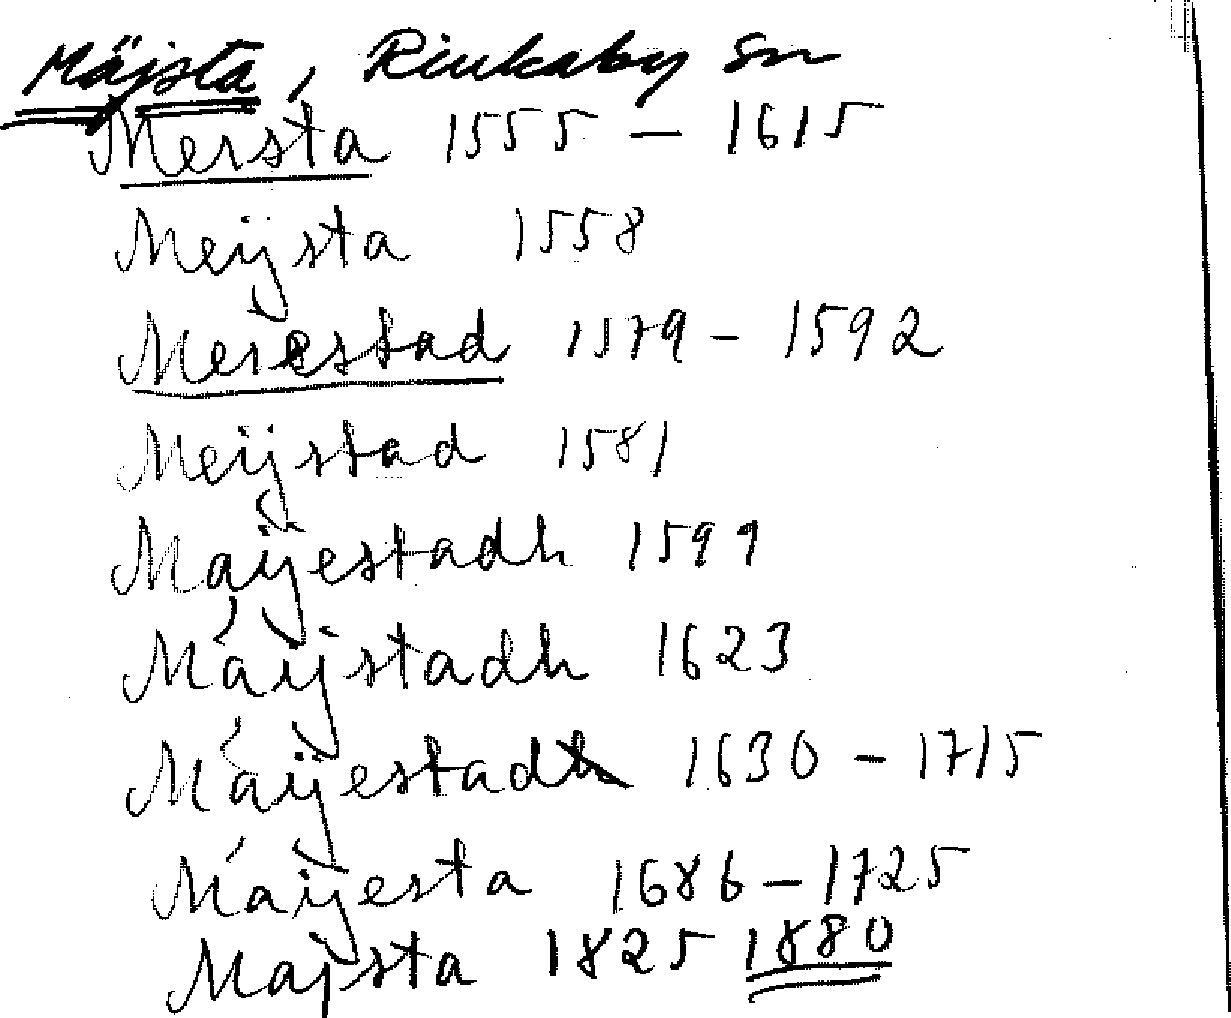 Mäjsta, Rinkaby Sn
Mersta 1555 – 1615
Meijsta 1558
Merestad 1579 – 1592
Meijstad 1581
Maijestadh 1599
Máijstadh 1623
Máijestad 1630 – 1715
Máijesta 1686 – 1725
Majsta 1825 1880